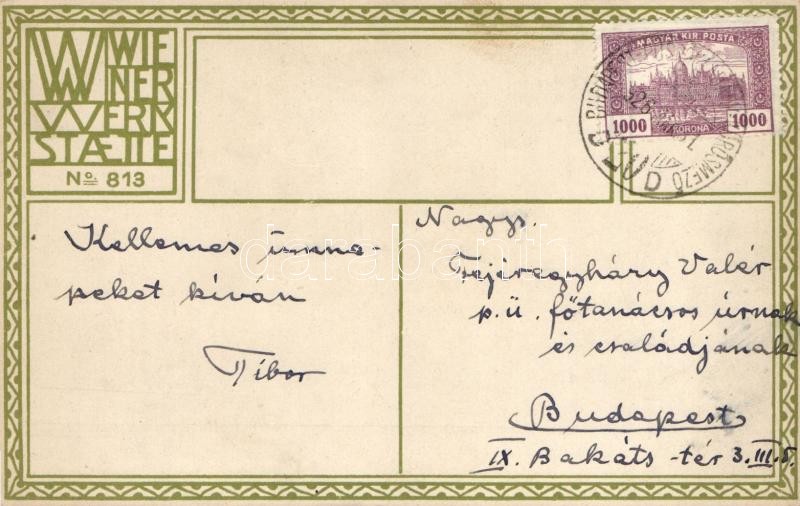 WIENER WERKSTÆTTE
No. 813
MAGYAR KIR. POSTA
1000 KORONA 1000
Kellemes ünne-
peket kíván
Tibor
Nagys.
Fejéregyházy Valér
p.ü. főtanácsos úrnak
és családjának
Budapest
IX. Bakáts-tér 3. III. 5.
darabanth